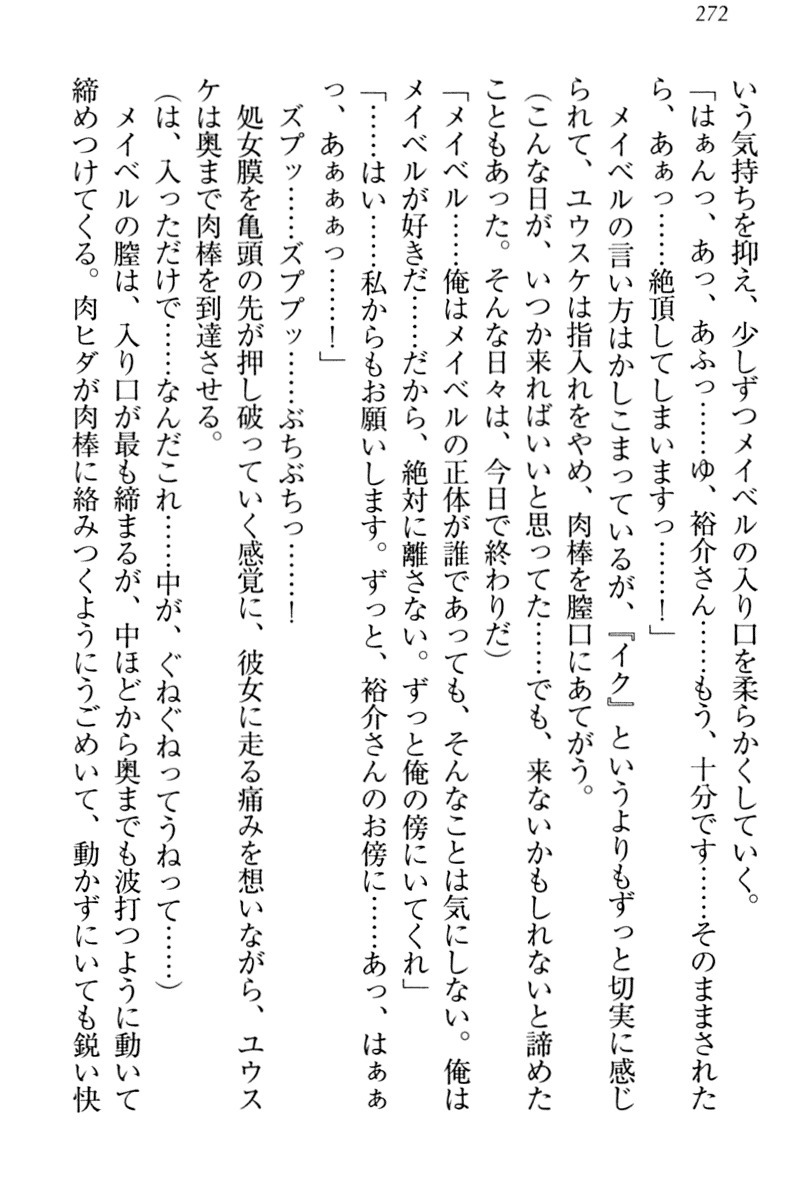 272
いう気持ちを抑え、少しずつメイベルの入り口を柔らかくしていく。
「はぁんっ、あっ、あふっ……ゆ、裕介さん……もう、十分です……そのままされた
ら、あぁっ……絶頂してしまいますっ……！」
メイベルの言い方はかしこまっているが、『イク』というよりもずっと切実に感じ
られて、ユウスケは指入れをやめ、肉棒を膣口にあてがう。
（こんな日が、いつか来ればいいと思ってた……でも、来ないかもしれないと諦めた
こともあった。そんな日々は、今日で終わりだ）
「メイベル……俺はメイベルの正体が誰であっても、そんなことは気にしない。俺は
メイベルが好きだ……だから、絶対に離さない。ずっと俺の傍にいてくれ」
「……はい……私からもお願いします。ずっと、裕介さんのお傍に……あっ、はぁぁ
っ、あぁぁぁっ……！」
ズプッ……ズププッ……ぶちぶちっ……！
処女膜を亀頭の先が押し破っていく感覚に、彼女に走る痛みを想いながら、ユウス
ケは奥まで肉棒を到達させる。
（は、入っただけで……なんだこれ……中が、ぐねぐねってうねって……）
メイベルの膣は、入り口が最も締まるが、中ほどから奥までも波打つように動いて
締めつけてくる。肉ヒダが肉棒に絡みつくようにうごめいて、動かずにいても鋭い快